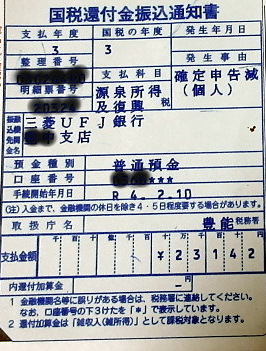 国税還付金振込通知書
支払年度 国税の年度 発生年月日
3 3
整理番号 支払科目 発生事由
明細票番号 源泉所得税及復興 確定申告減(個人)
20329
振込先金融機関名 三菱UFJ銀行
支店
預金種別 普通預金
口座番号 ***
手続開始年月日 R 4. 2.10
(注)入金まで、金融機関の休日を除き4・5日程度要する場合があります。
取扱庁名 豊能 税務署
支払金額 十 億 千 百 十 万 千 百 十 円
¥23142
内還付加算金 -円
1 金融機関名等に誤りがある場合は、税務署に連絡してください。
なお、口座番号の下3けたを「*」で表示しています。
2 還付加算金は「雑収入(雑所得)」として課税対象となります。